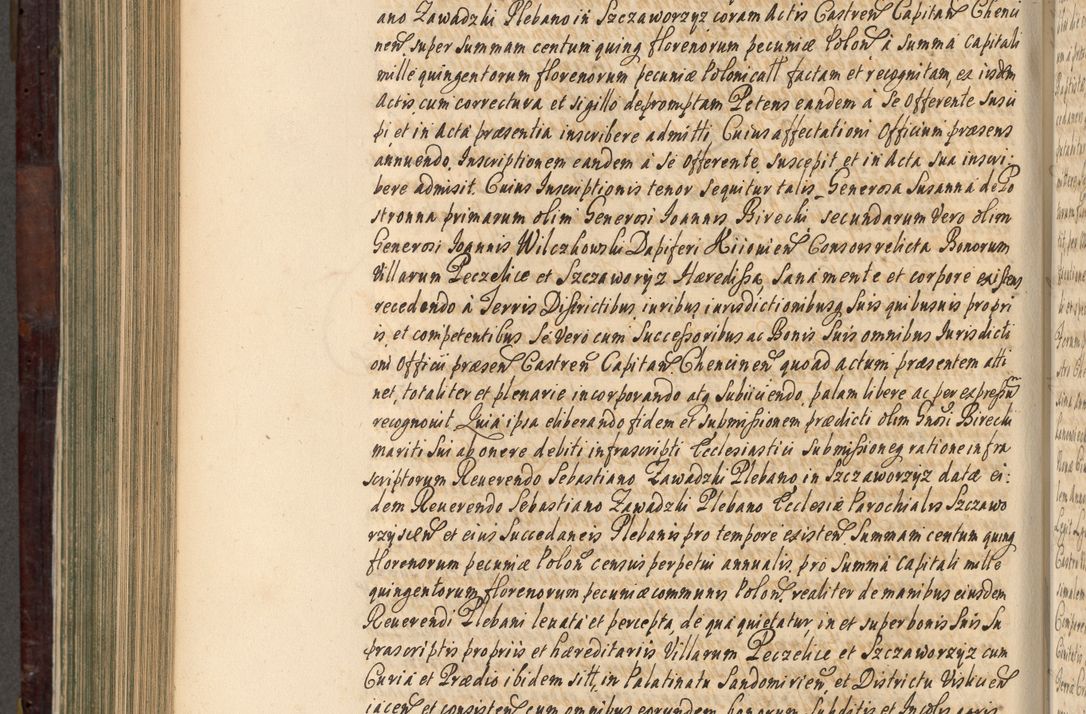 ano Zawadzki Plebano in Szczaworzyz coram Actis Castren Capitan Chenci
nen super Summam centum quing florenorum pecuniæ Polon à Summa Capitali
mille quingentorum florenorum pecuniæ Polonicall factam et recognitam, ex iisdem
Actis cum correctura et sigillo depromptam Petens eandem à Se Offerente Susci
pi et in Acta præsentia inscribere admitti, Cuius affectationi Officium præsens
annuendo, Inscriptionem eandem à Se Offerente, suscepit et in Acta sua inscri:
bere admisit. Cuius Inscriptionis tenor Sequitur talis. Generosa Susanna de Po
stronna primarum olim Generosi Joannis Birecki secundarum Vero olim
Generosi Joannis Wilczkowski Dapiferi Kiiouien Consors relicta Bonorum
Villarum Peczelice et Szczaworyz Hæredissa, Sana mente et corpore existens
recedendo à Terris Districtibus, iuribus iurisdictionibusq suis quibusuis propri
is et competentibus Se Vero cum Successoribus ac Bonis Suis omnibus Jurisdicti
oni Officii præsen Castren Capitan Chencinen quoad actum præsentem atti
net, totaliter et plenarie incorporando atq Subiiciendo, palam libere ac per expressu
recognouit. Quia ipsa eliberando fidem et Submissionem prædicti olim Gnosi Birecki
mariti Sui ab onere debiti infrascripti Ecclesiastici Submissioneq ratione infra
scriptorum Reuerendo Sebastiano Zawadzki Plebano in Szczaworzyz datæ ei:
dem Reuerendo Sebastiano Zawadzki Plebano Ecclesiæ Parochialis Szczawo
rzyscen et eius Succedaneis Plebanis pro tempore existen Summam centum quing
florenorum pecuniæ Polon census perpetui annualis, pro Summa Capitali mille
quingentorum florenorum pecuniæ communis Polon, realiter de manibus eiusdem
Reuerendi Plebani leuata et percepta, de qua quietatur, in et super bonis Suis Su
prascriptis propriis et hæreditariis Villarum Peczelice et Szczaworzyz cum
Curia et Prædio ibidem sitt, in Palatinatu Sandomirien et Districtu Vislicien
iacen et consisten cum omnibus eorundem bonorum Subditis et Incolis agris